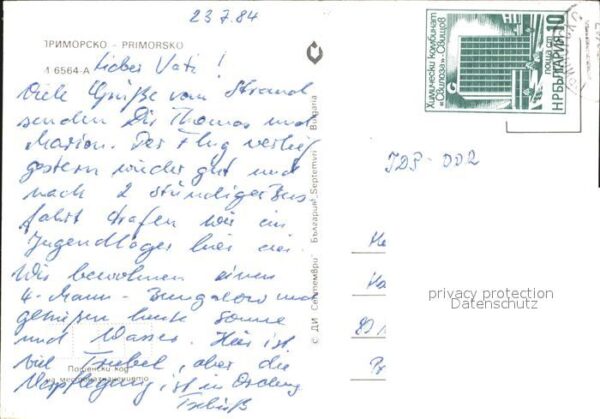 23.7.84
ПРИМОРСКО - PRIMORSKO
6564-A
Lieber Vati!
Viele Grüße vom Strand
senden Dir Thomas und
Marion. Der Flug verlief
gestern wieder gut und
nach 2 stündiger Bus
fahrt trafen wir im
Jugendlager hier ein.
Wir bewohnen einen
4-Mann-Bungalow und
genießen heute Sonne
und Wasser. Hier ist
viel Trubel, aber die
Verpflegung ist in Ordnung
Tschüß
Пощенски код
на местоназначението
© ДИ "Септември" България "Septemvri" Bulgaria
Химически комбинат
«Свилоза»-Свищов
поща ст 10
НР БЪЛГАРИЯ
privacy protection
Datenschutz